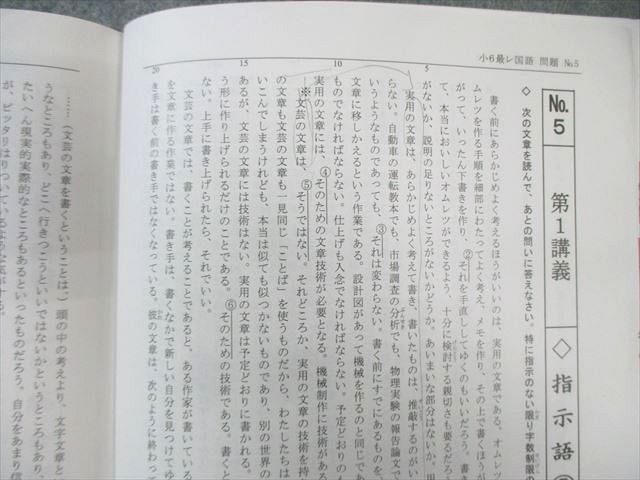 小6最レ国語 問題 №5
№5 第1講義 ◇指示語
◇ 次の文章を読んで、あとの問いに答えなさい。特に指示のない限り字数制限の
書く前にあらかじめよく考えるほうがいいのは、実用の文章である。オムレツ
ムレツを作る手順を細部にわたってよく考え、メモを作り、その上で書くほうが
がって、いったん下書きを作り、②それを手直ししてゆくのもいいだろう。書き
て、本当においしいオムレツができるよう、十分に検討する親切さも要るだろう
5
がないか、説明の足りないところがないかどうか、あいまいな部分はないか、用
実用の文章は、あらかじめよく考えて書き、書いたものは、推敲するのがい
らない。自動車の運転教本でも、市場調査の分析でも、物理実験の報告論文で
いうようなものであっても、③それは変わらない。書く前にすでにあるものを、
文章に移しかえるという作業である。設計図があって機械を作るのと同じであ
10
ものでなければならない。仕上げも入念でなければならない。予定どおりの
実用の文章には、④そのための文章技術が必要となる。機械制作に技術がある
※文芸の文章は、⑤そうではない。それどころか、実用の文章の技術を持
の文章も文芸の文章も一見同じ「ことば」を使うものだから、わたしたちは
いこんでしまうけれども、本当は似ても似つかないものであり、別の世界の
15
あるが、文芸の文章には技術はない。実用の文章は予定どおりに書かれる。
う形に作り上げられるだけのことである。⑥そのための技術である。書くと
ない。上手に書き上げられたら、それでいい。
文芸の文章では、書くことが考えることであると、ある作家が書いている
を文章に作る作業ではない。書き手は、書くなかで新しい自分を見つけてゆ
20
き手は書く前の書き手ではなくなっている。彼の文章は、次のように終わって
……(文芸の文章を書くということは、)頭の中の考えより、文字文章と
うなところもあり、どこへ行きつこうといいではないかというところもあり、
たいへん現実的実際的なところもあるといったものだろう。自分をあまり信
が、ピッタリはりついているような気がする。